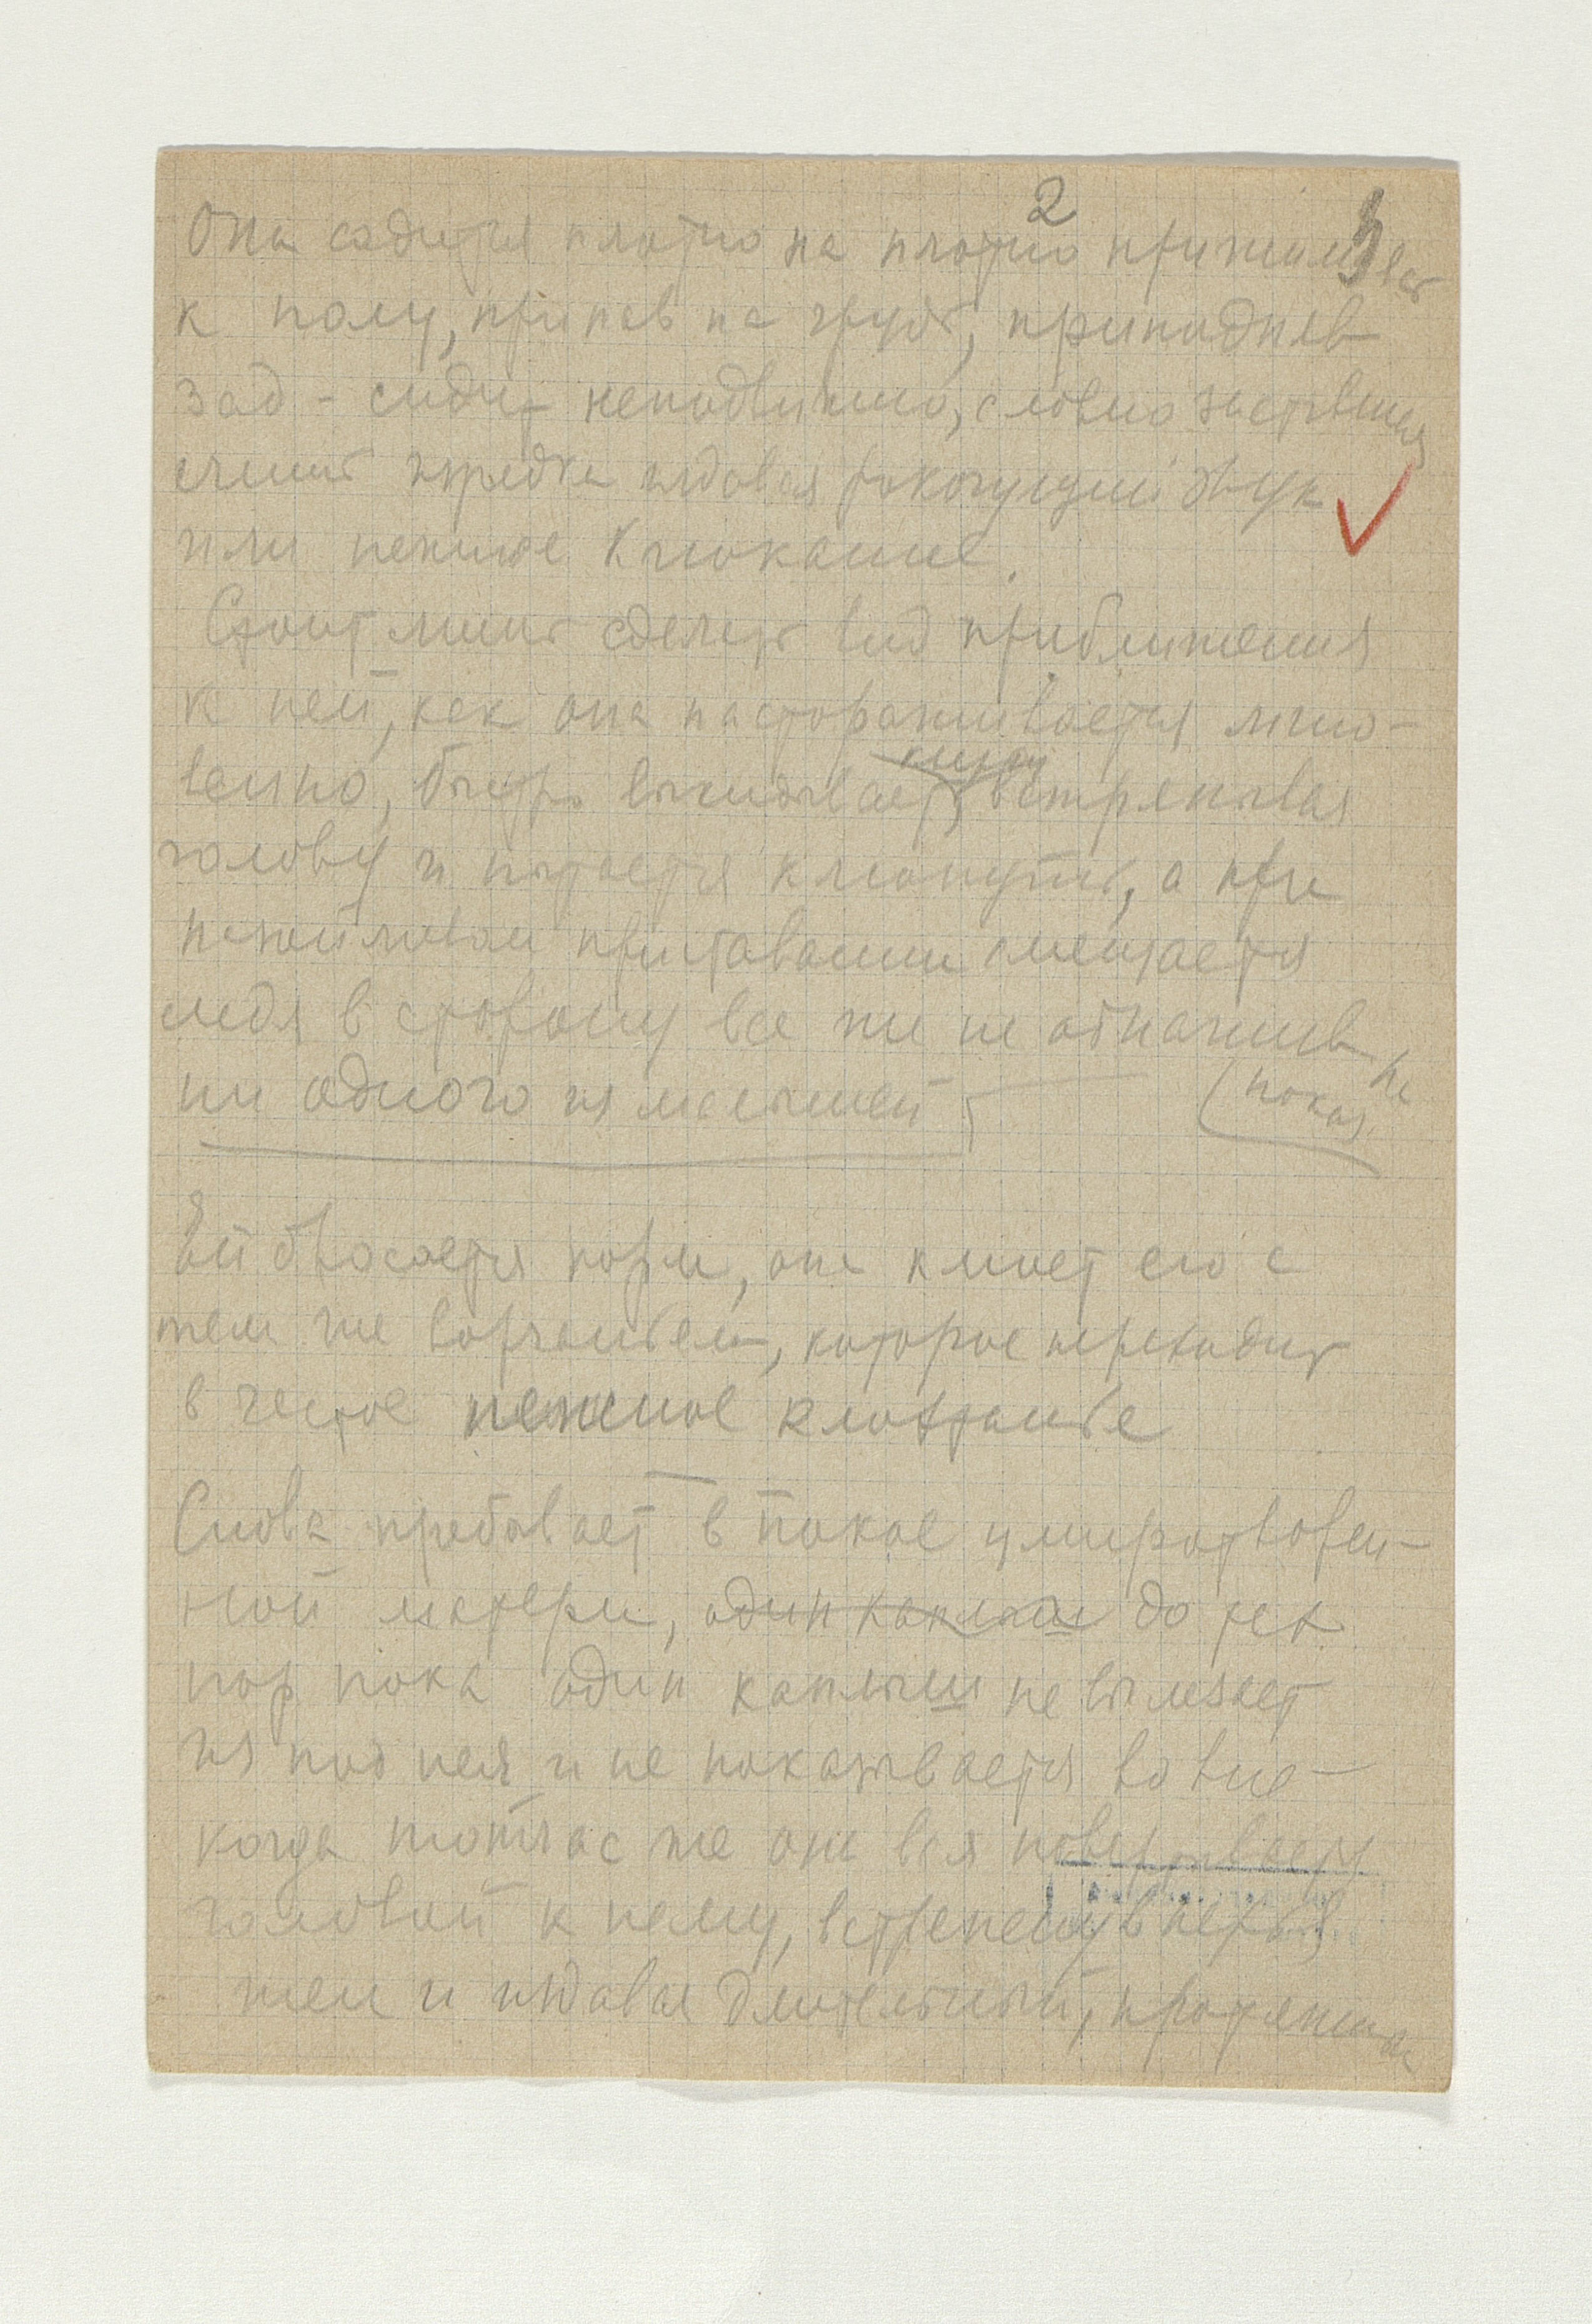 2 3
Она садится плотно на плотно прижимает
к полу, припав на грудь, приподняв
зад – сидит неподвижно, словно застывшая
изредка издавая рокочущий звук
или нежное клюкание.
Стоит лишь сделать вид приближения
к ней, как она настораживается мгно-
венно, быстро выкидывает встрепывая
голову и пытается клюнуть, а при
приставании смещается
сидя в сторону все же не обнажив
ни одного из малышей
(покая
Ей бросается корм, она клюет его с
тем же ворчаньем, которое переходит
в частое нежное клохтанье
Снова пребывает в покое умиротворен-
ной матери, один каплыш до тех
пор пока один каплыш не вылезает
из под нея и не показывается во вне –
когда тотчас же она вся повертывается
головой к нему, встрепенув перья
ми и издавая длительный, протяжный